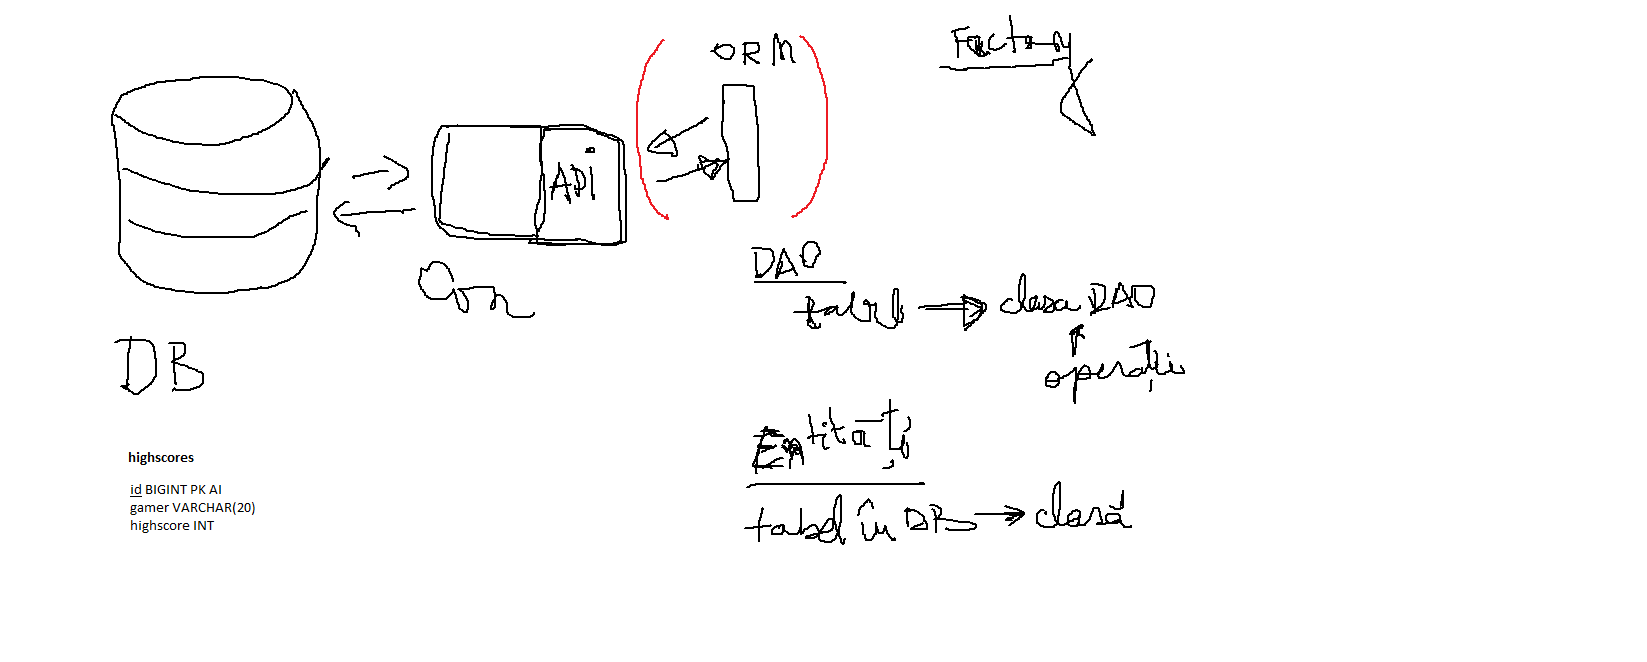 ORM
Factory
API
DAO
tabel → clasa DAO
operații
Con
DB
Entități
tabel în DB → clasă
highscores
id BIGINT PK AI
gamer VARCHAR(20)
highscore INT